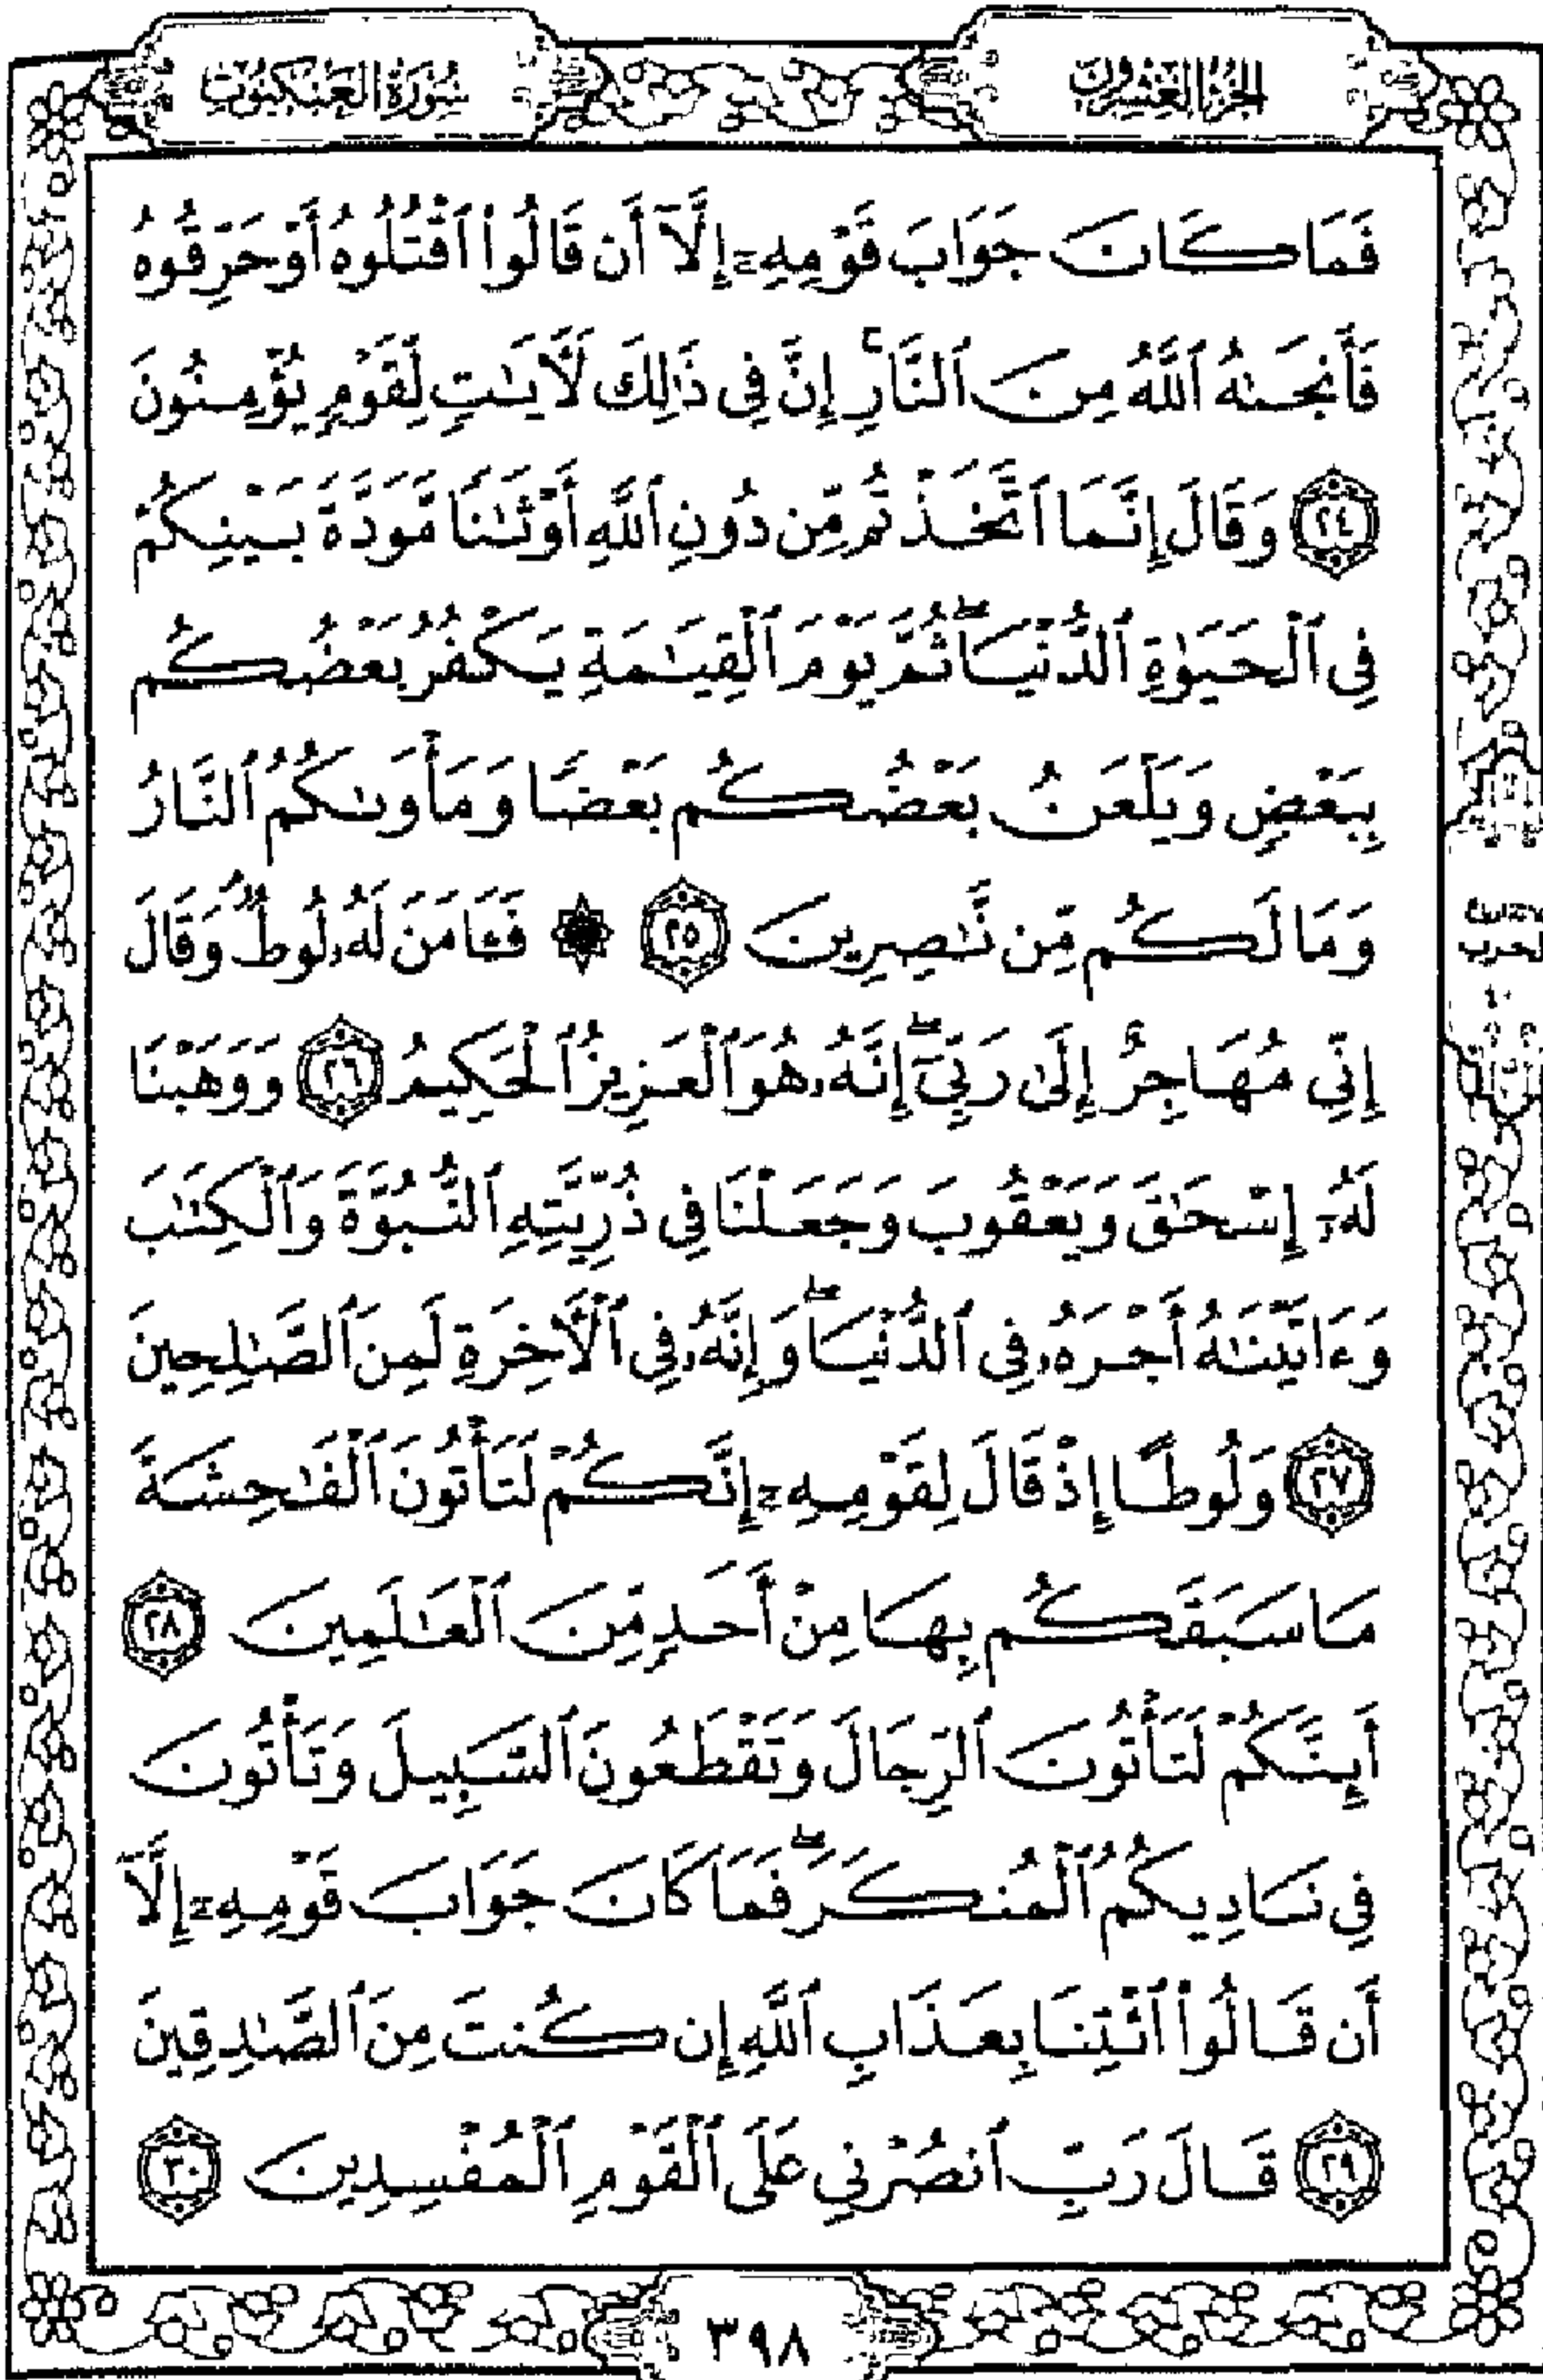 الجزء العشرون
سورة العنكبوت
فَمَا كَانَ جَوَابَ قَوْمِهِۦٓ إِلَّآ أَن قَالُوا۟ ٱقْتُلُوهُ أَوْ حَرِّقُوهُ
فَأَنجَىٰهُ ٱللَّهُ مِنَ ٱلنَّارِ ۚ إِنَّ فِى ذَٰلِكَ لَـَٔايَـٰتٍ لِّقَوْمٍ يُؤْمِنُونَ
﴿٢٤﴾ وَقَالَ إِنَّمَا ٱتَّخَذْتُم مِّن دُونِ ٱللَّهِ أَوْثَـٰنًا مَّوَدَّةَ بَيْنِكُمْ
فِى ٱلْحَيَوٰةِ ٱلدُّنْيَا ۖ ثُمَّ يَوْمَ ٱلْقِيَـٰمَةِ يَكْفُرُ بَعْضُكُم
بِبَعْضٍ وَيَلْعَنُ بَعْضُكُم بَعْضًا وَمَأْوَىٰكُمُ ٱلنَّارُ
وَمَا لَكُم مِّن نَّـٰصِرِينَ ﴿٢٥﴾ ۞ فَـَٔامَنَ لَهُۥ لُوطٌ ۘ وَقَالَ
إِنِّى مُهَاجِرٌ إِلَىٰ رَبِّىٓ ۖ إِنَّهُۥ هُوَ ٱلْعَزِيزُ ٱلْحَكِيمُ ﴿٢٦﴾ وَوَهَبْنَا
لَهُۥٓ إِسْحَـٰقَ وَيَعْقُوبَ وَجَعَلْنَا فِى ذُرِّيَّتِهِ ٱلنُّبُوَّةَ وَٱلْكِتَـٰبَ
وَءَاتَيْنَـٰهُ أَجْرَهُۥ فِى ٱلدُّنْيَا ۖ وَإِنَّهُۥ فِى ٱلْـَٔاخِرَةِ لَمِنَ ٱلصَّـٰلِحِينَ
﴿٢٧﴾ وَلُوطًا إِذْ قَالَ لِقَوْمِهِۦٓ إِنَّكُمْ لَتَأْتُونَ ٱلْفَـٰحِشَةَ
مَا سَبَقَكُم بِهَا مِنْ أَحَدٍ مِّنَ ٱلْعَـٰلَمِينَ ﴿٢٨﴾
أَئِنَّكُمْ لَتَأْتُونَ ٱلرِّجَالَ وَتَقْطَعُونَ ٱلسَّبِيلَ وَتَأْتُونَ
فِى نَادِيكُمُ ٱلْمُنكَرَ ۖ فَمَا كَانَ جَوَابَ قَوْمِهِۦٓ إِلَّآ
أَن قَالُوا۟ ٱئْتِنَا بِعَذَابِ ٱللَّهِ إِن كُنتَ مِنَ ٱلصَّـٰدِقِينَ
﴿٢٩﴾ قَالَ رَبِّ ٱنصُرْنِى عَلَى ٱلْقَوْمِ ٱلْمُفْسِدِينَ ﴿٣٠﴾
٣٩٨